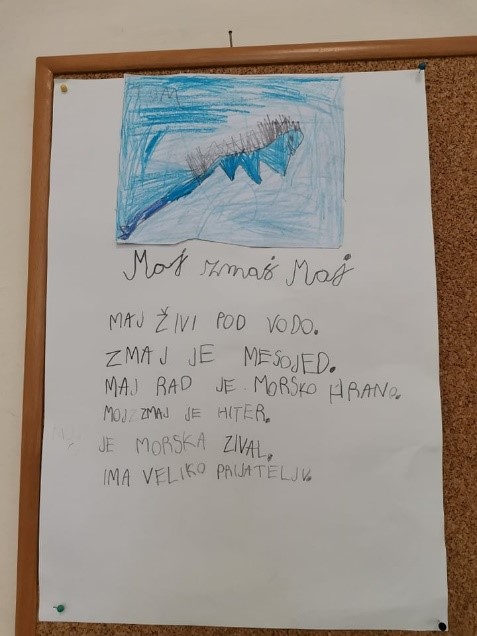 M
Moj zmaj Maj
MAJ ŽIVI POD VODO.
ZMAJ JE MESOJED.
MAJ RAD JE MORSKO HRANO.
MOJ ZMAJ JE HITER.
JE MORSKA ZIVAL.
IMA VELIKO PRIJATELJV.